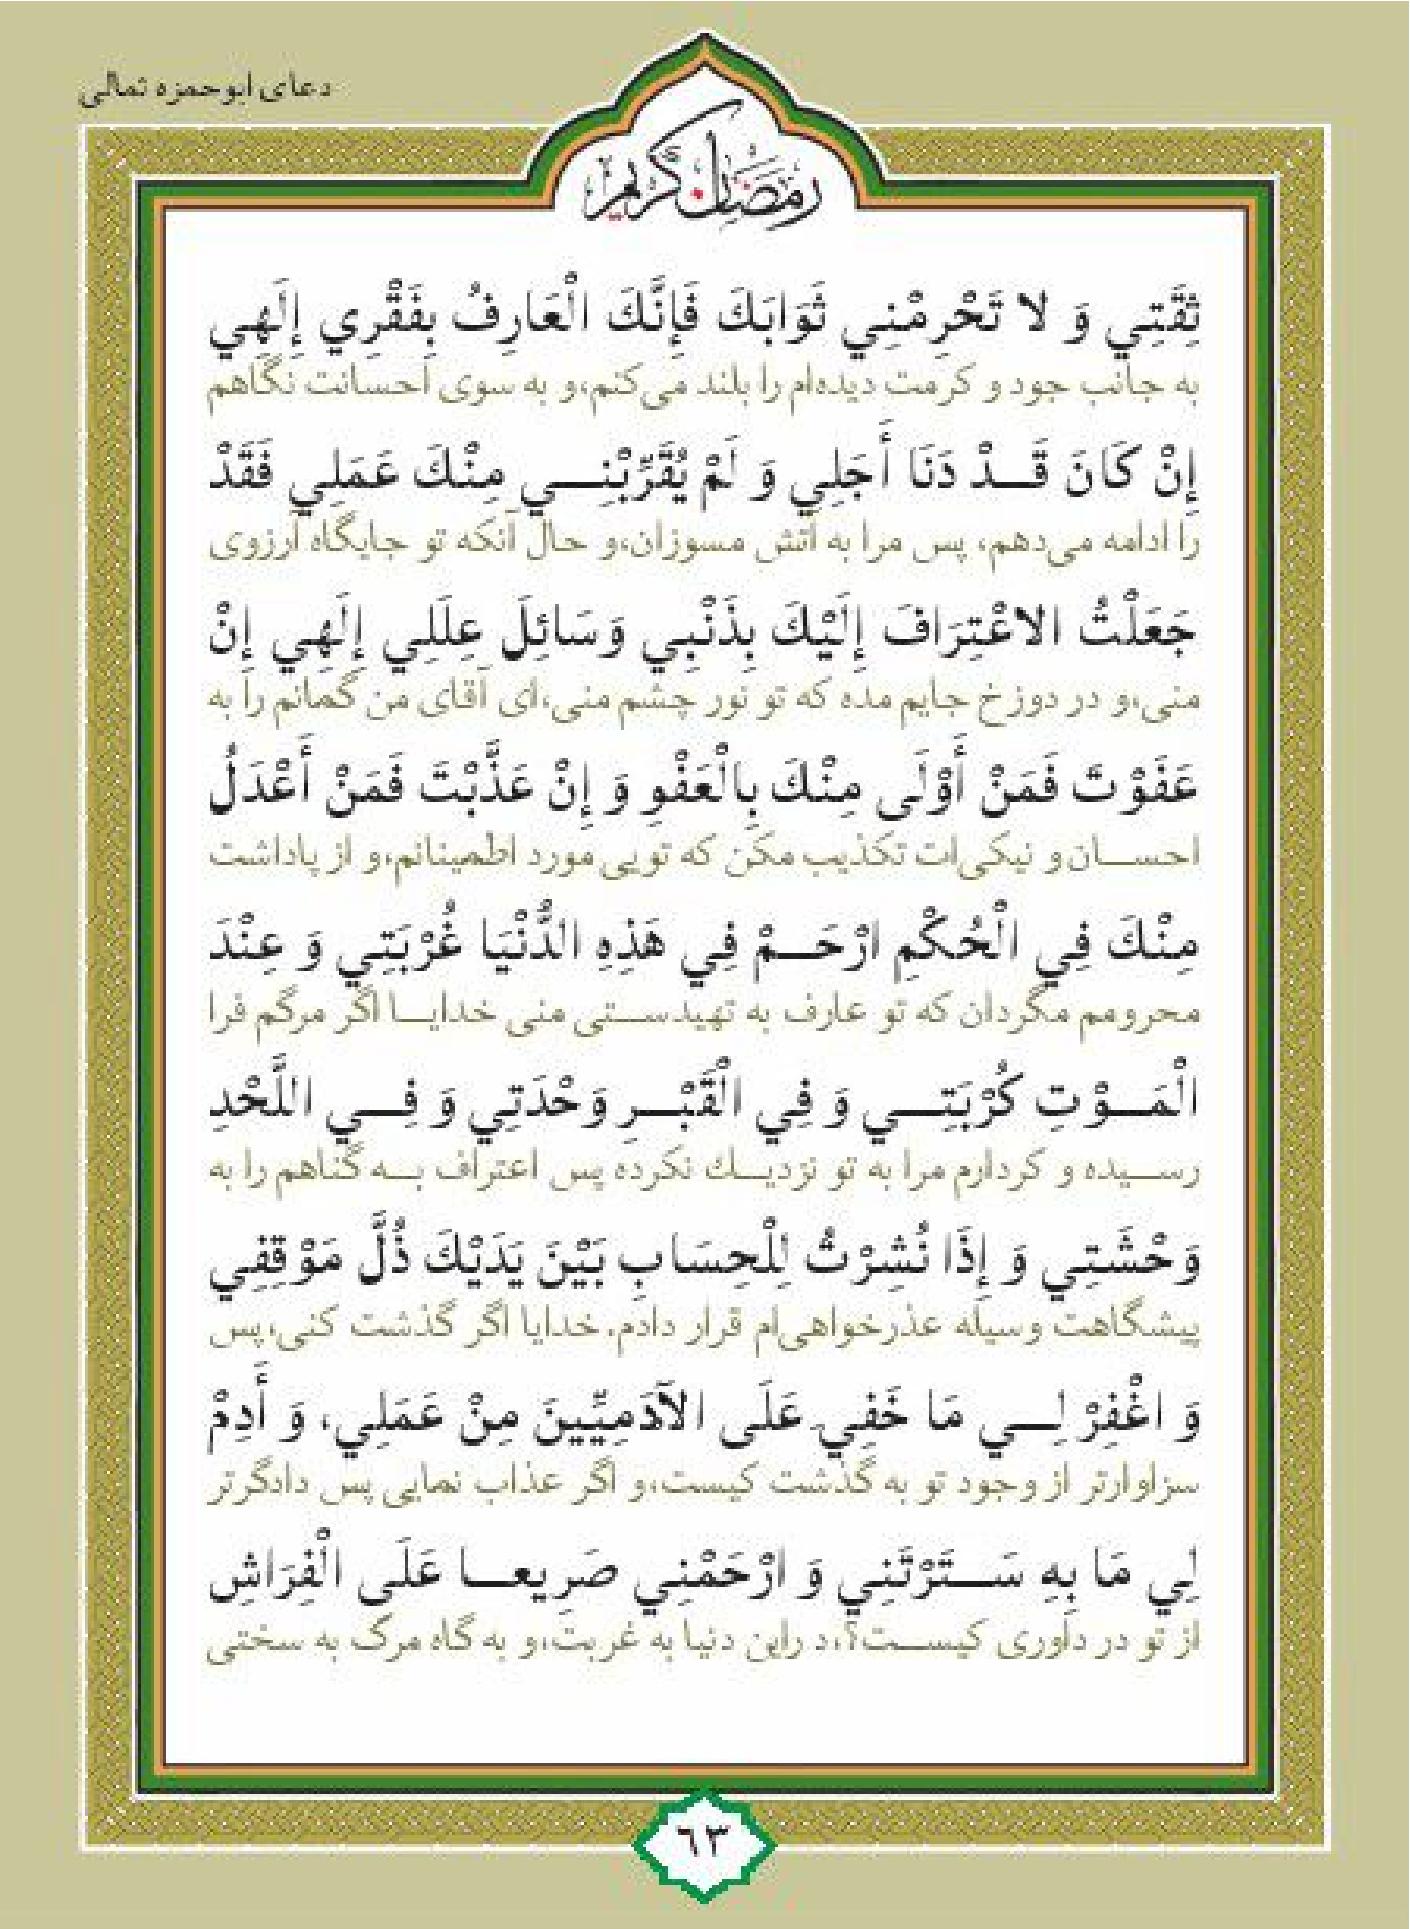 دعای ابوحمزه ثمالی
رمضان کریم
ثِقَتِي وَ لا تَحْرِمْنِي ثَوَابَكَ فَإِنَّكَ الْعَارِفُ بِفَقْرِي إِلَهِي
به جانب جود و کرمت دیده‌ام را بلند می‌کنم،و به سوی احسانت نگاهم
إِنْ كَانَ قَــدْ دَنَا أَجَلِي وَ لَمْ يُقَرِّبْنِــي مِنْكَ عَمَلِي فَقَدْ
را ادامه می‌دهم، پس مرا به آتش مسوزان،و حال آنکه تو جایگاه آرزوی
جَعَلْتُ الاعْتِرَافَ إِلَيْكَ بِذَنْبِي وَسَائِلَ عِلَلِي إِلَهِي إِنْ
منی،و در دوزخ جایم مده که تو نور چشم منی،ای آقای من گمانم را به
عَفَوْتَ فَمَنْ أَوْلَى مِنْكَ بِالْعَفْوِ وَ إِنْ عَذَّبْتَ فَمَنْ أَعْدَلُ
احســان‌و نیکی‌ات تکذیب مکن که تویی مورد اطمینانم،و از پاداشت
مِنْكَ فِي الْحُكْمِ ارْحَــمْ فِي هَذِهِ الدُّنْيَا غُرْبَتِي وَ عِنْدَ
محرومم مگردان که تو عارف به تهیدســتی منی خدایــا اگر مرگم فرا
الْمَــوْتِ كُرْبَتِــي وَ فِي الْقَبْــرِ وَحْدَتِي وَ فِــي اللَّحْدِ
رســیده و کردارم مرا به تو نزدیــك نکرده پس اعتراف بــه گناهم را به
وَحْشَتِي وَ إِذَا نُشِرْتُ لِلْحِسَابِ بَيْنَ يَدَيْكَ ذُلَّ مَوْقِفِي
پیشگاهت وسیله عذرخواهی‌ام قرار دادم. خدایا اگر گذشت کنی،پس
وَ اغْفِرْ لِــي مَا خَفِيَ عَلَى الْآدَمِيِّينَ مِنْ عَمَلِي، وَ أَدِمْ
سزاوارتر از وجود تو به گذشت کیست،و اگر عذاب نمایی پس دادگرتر
لِي مَا بِهِ سَــتَرْتَنِي وَ ارْحَمْنِي صَرِيعــا عَلَى الْفِرَاشِ
از تو در داوری کیســت؟،د راین دنیا به غربت،و به گاه مرگ به سختی
٦٣